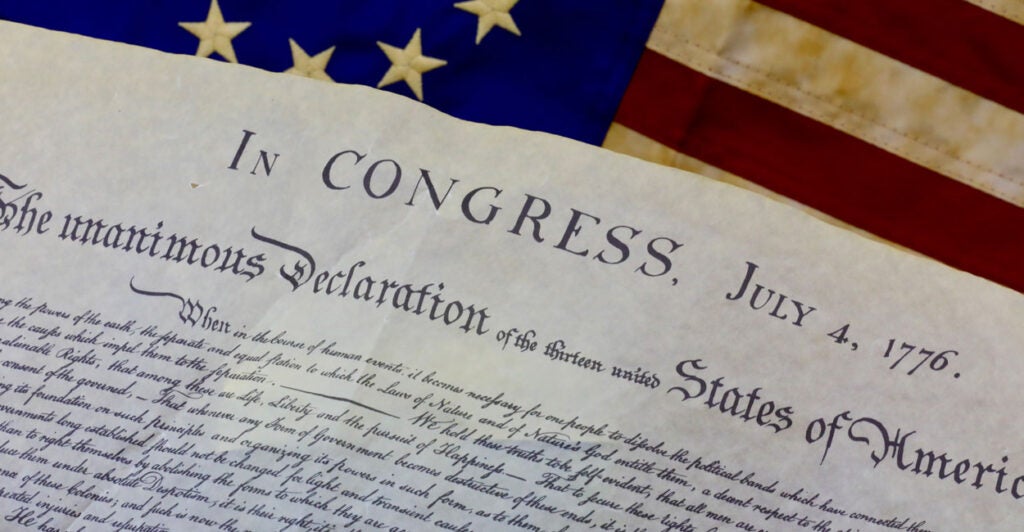 In CONGRESS, July 4, 1776.
The unanimous Declaration of the thirteen united States of Americ
When in the Course of human events, it becomes necessary for one people to dissolve the political bands which have connected them
the powers of the earth, the separate and equal station to which the Laws of Nature and of Nature's God entitle them, a decent respect to the
the causes which impel them to the separation. — We hold these truths to be self-evident, that all men are
unalienable Rights, that among these are Life, Liberty and the pursuit of Happiness. — That to secure these rights,
consent of the governed, — That whenever any Form of Government becomes destructive of these ends, it is
its foundation on such principles and organizing its powers in such form, as to them
vernments long established should not be changed for light and transient
than to right themselves by abolishing the forms to which they are
them under absolute Despotism, it is their right
of these Colonies; and such is now the
injuries and usurpations
He has